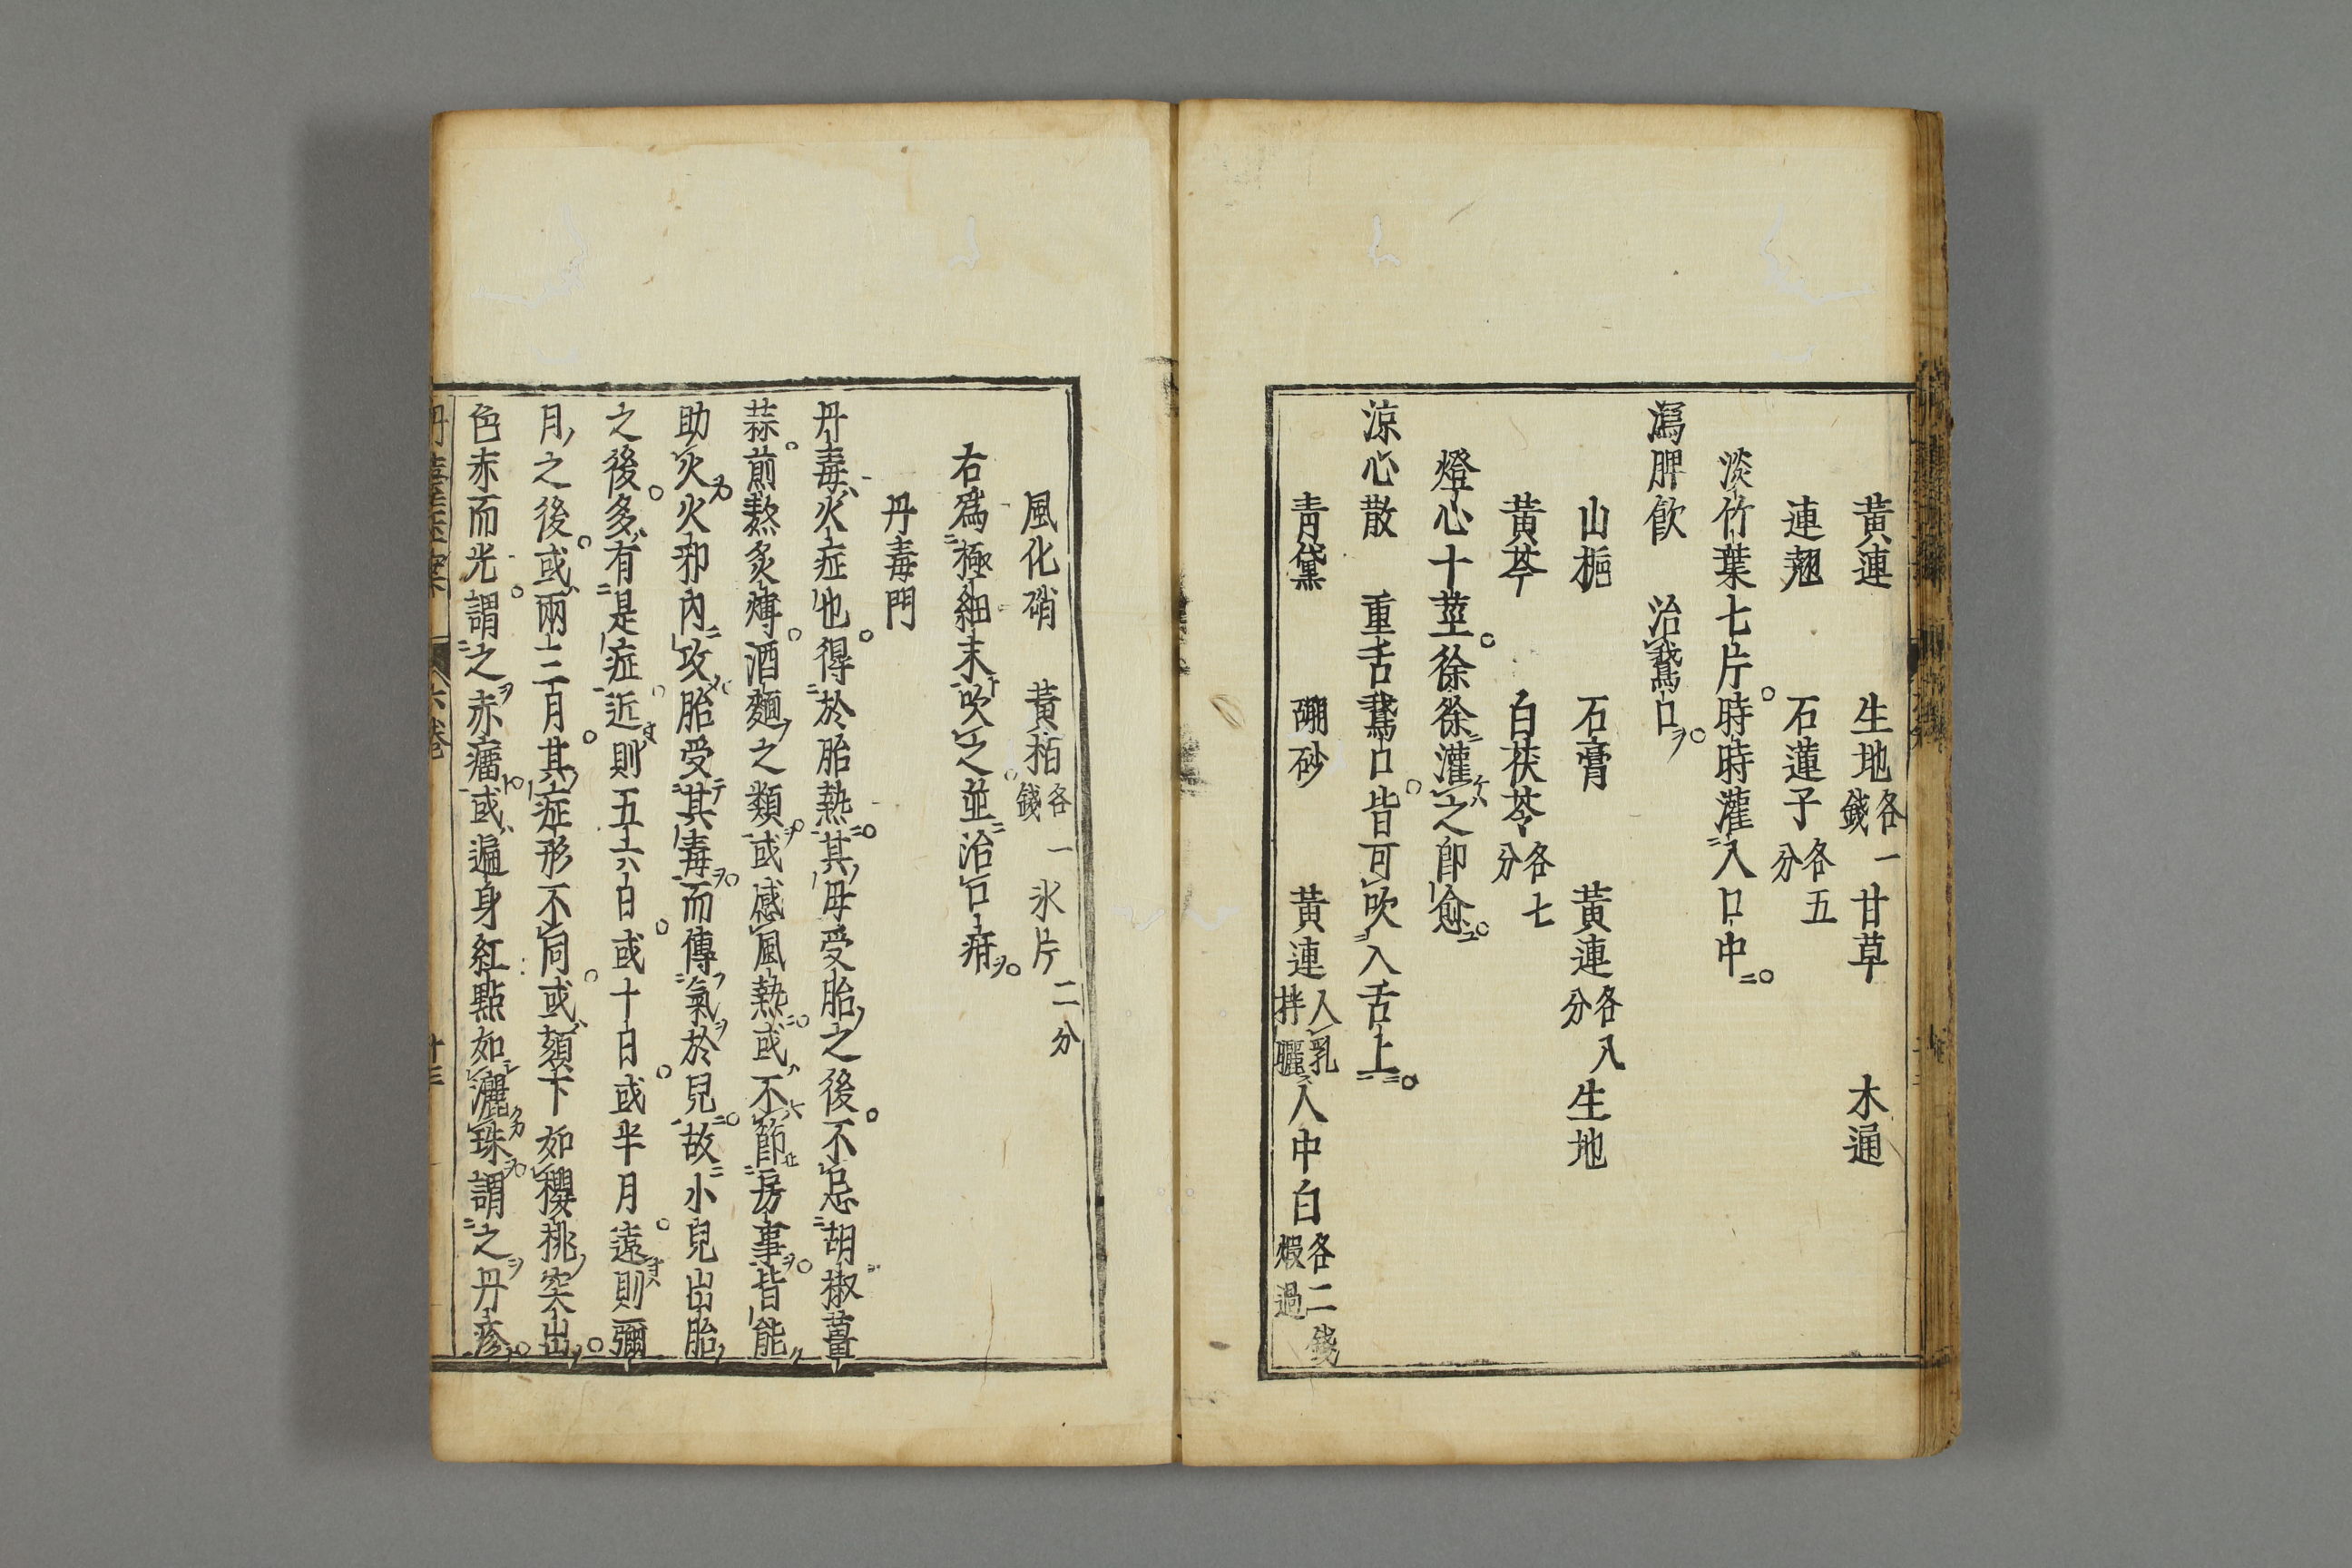 黃連　生地各一錢　甘草　木通
連翹　石蓮子各五分
淡竹葉七片時時灌入口中
瀉脾飲　治鵞口
山梔　石膏　黃連各八分　生地
黃芩　白茯苓各七分
燈心十莖徐徐灌之卽愈
涼心散　重舌鵞口皆可吹入舌上
靑黛　硼砂　黃連人乳拌曬　人中白各二錢煅過
風化硝　黃栢各一錢　氷片二分
右爲極細末吹之並治口疳
丹毒門
丹毒火症也得於胎熱其母受胎之後不忌胡椒薑
蒜煎熬炙煿酒麵之類或感風熱或不節房事皆能
助火火邪內攻胎受其毒而傳氣於兒故小兒出胎
之後多有是症近則五六日或十日或半月遠則彌
月之後或兩三月其症形不同或頦下如櫻桃突出
色赤而光謂之赤瘤或遍身紅點如灑珠謂之丹疹
六卷